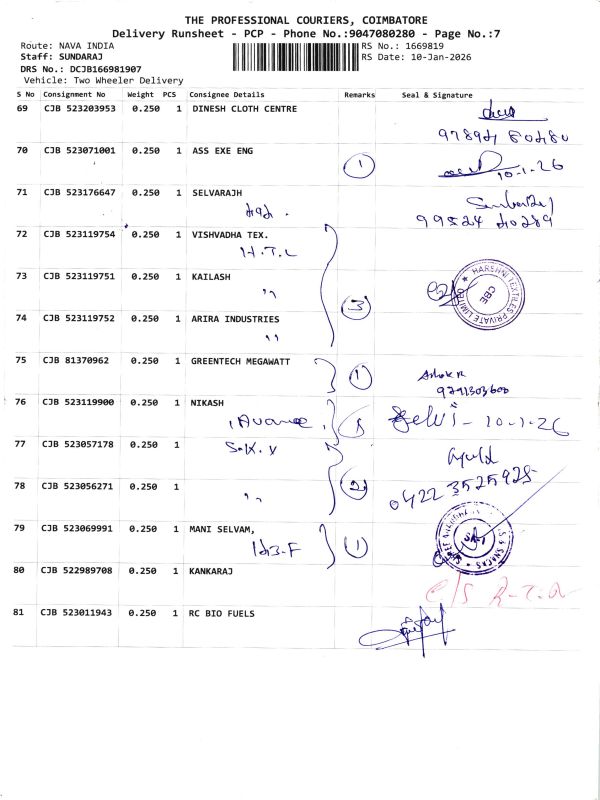 THE PROFESSIONAL COURIERS, COIMBATORE
Delivery Runsheet - PCP - Phone No.:9047080280 - Page No.:7
Route: NAVA INDIA RS No.: 1669819
Staff: SUNDARAJ RS Date: 10-Jan-2026
DRS No.: DCJB166981907
Vehicle: Two Wheeler Delivery
S No Consignment No Weight PCS Consignee Details Remarks Seal & Signature
69 CJB 523203953 0.250 1 DINESH CLOTH CENTRE
97894 80480
70 CJB 523071001 0.250 1 ASS EXE ENG 1
10-1-26
71 CJB 523176647 0.250 1 SELVARAJH
99524 40289
72 CJB 523119754 0.250 1 VISHVADHA TEX.
H.T.L
73 CJB 523119751 0.250 1 KAILASH
" 3
HARSHNI TEXTILES PRIVATE LIMITED
CBE
74 CJB 523119752 0.250 1 ARIRA INDUSTRIES
"
75 CJB 81370962 0.250 1 GREENTECH MEGAWATT 1
Ashok R
9791303600
76 CJB 523119900 0.250 1 NIKASH
Selvi - 10-1-26
77 CJB 523057178 0.250 1
S.K.V
78 CJB 523056271 0.250 1 2
"
0422 3525925
79 CJB 523069991 0.250 1 MANI SELVAM,
1
& SNACKS
80 CJB 522989708 0.250 1 KANKARAJ
81 CJB 523011943 0.250 1 RC BIO FUELS